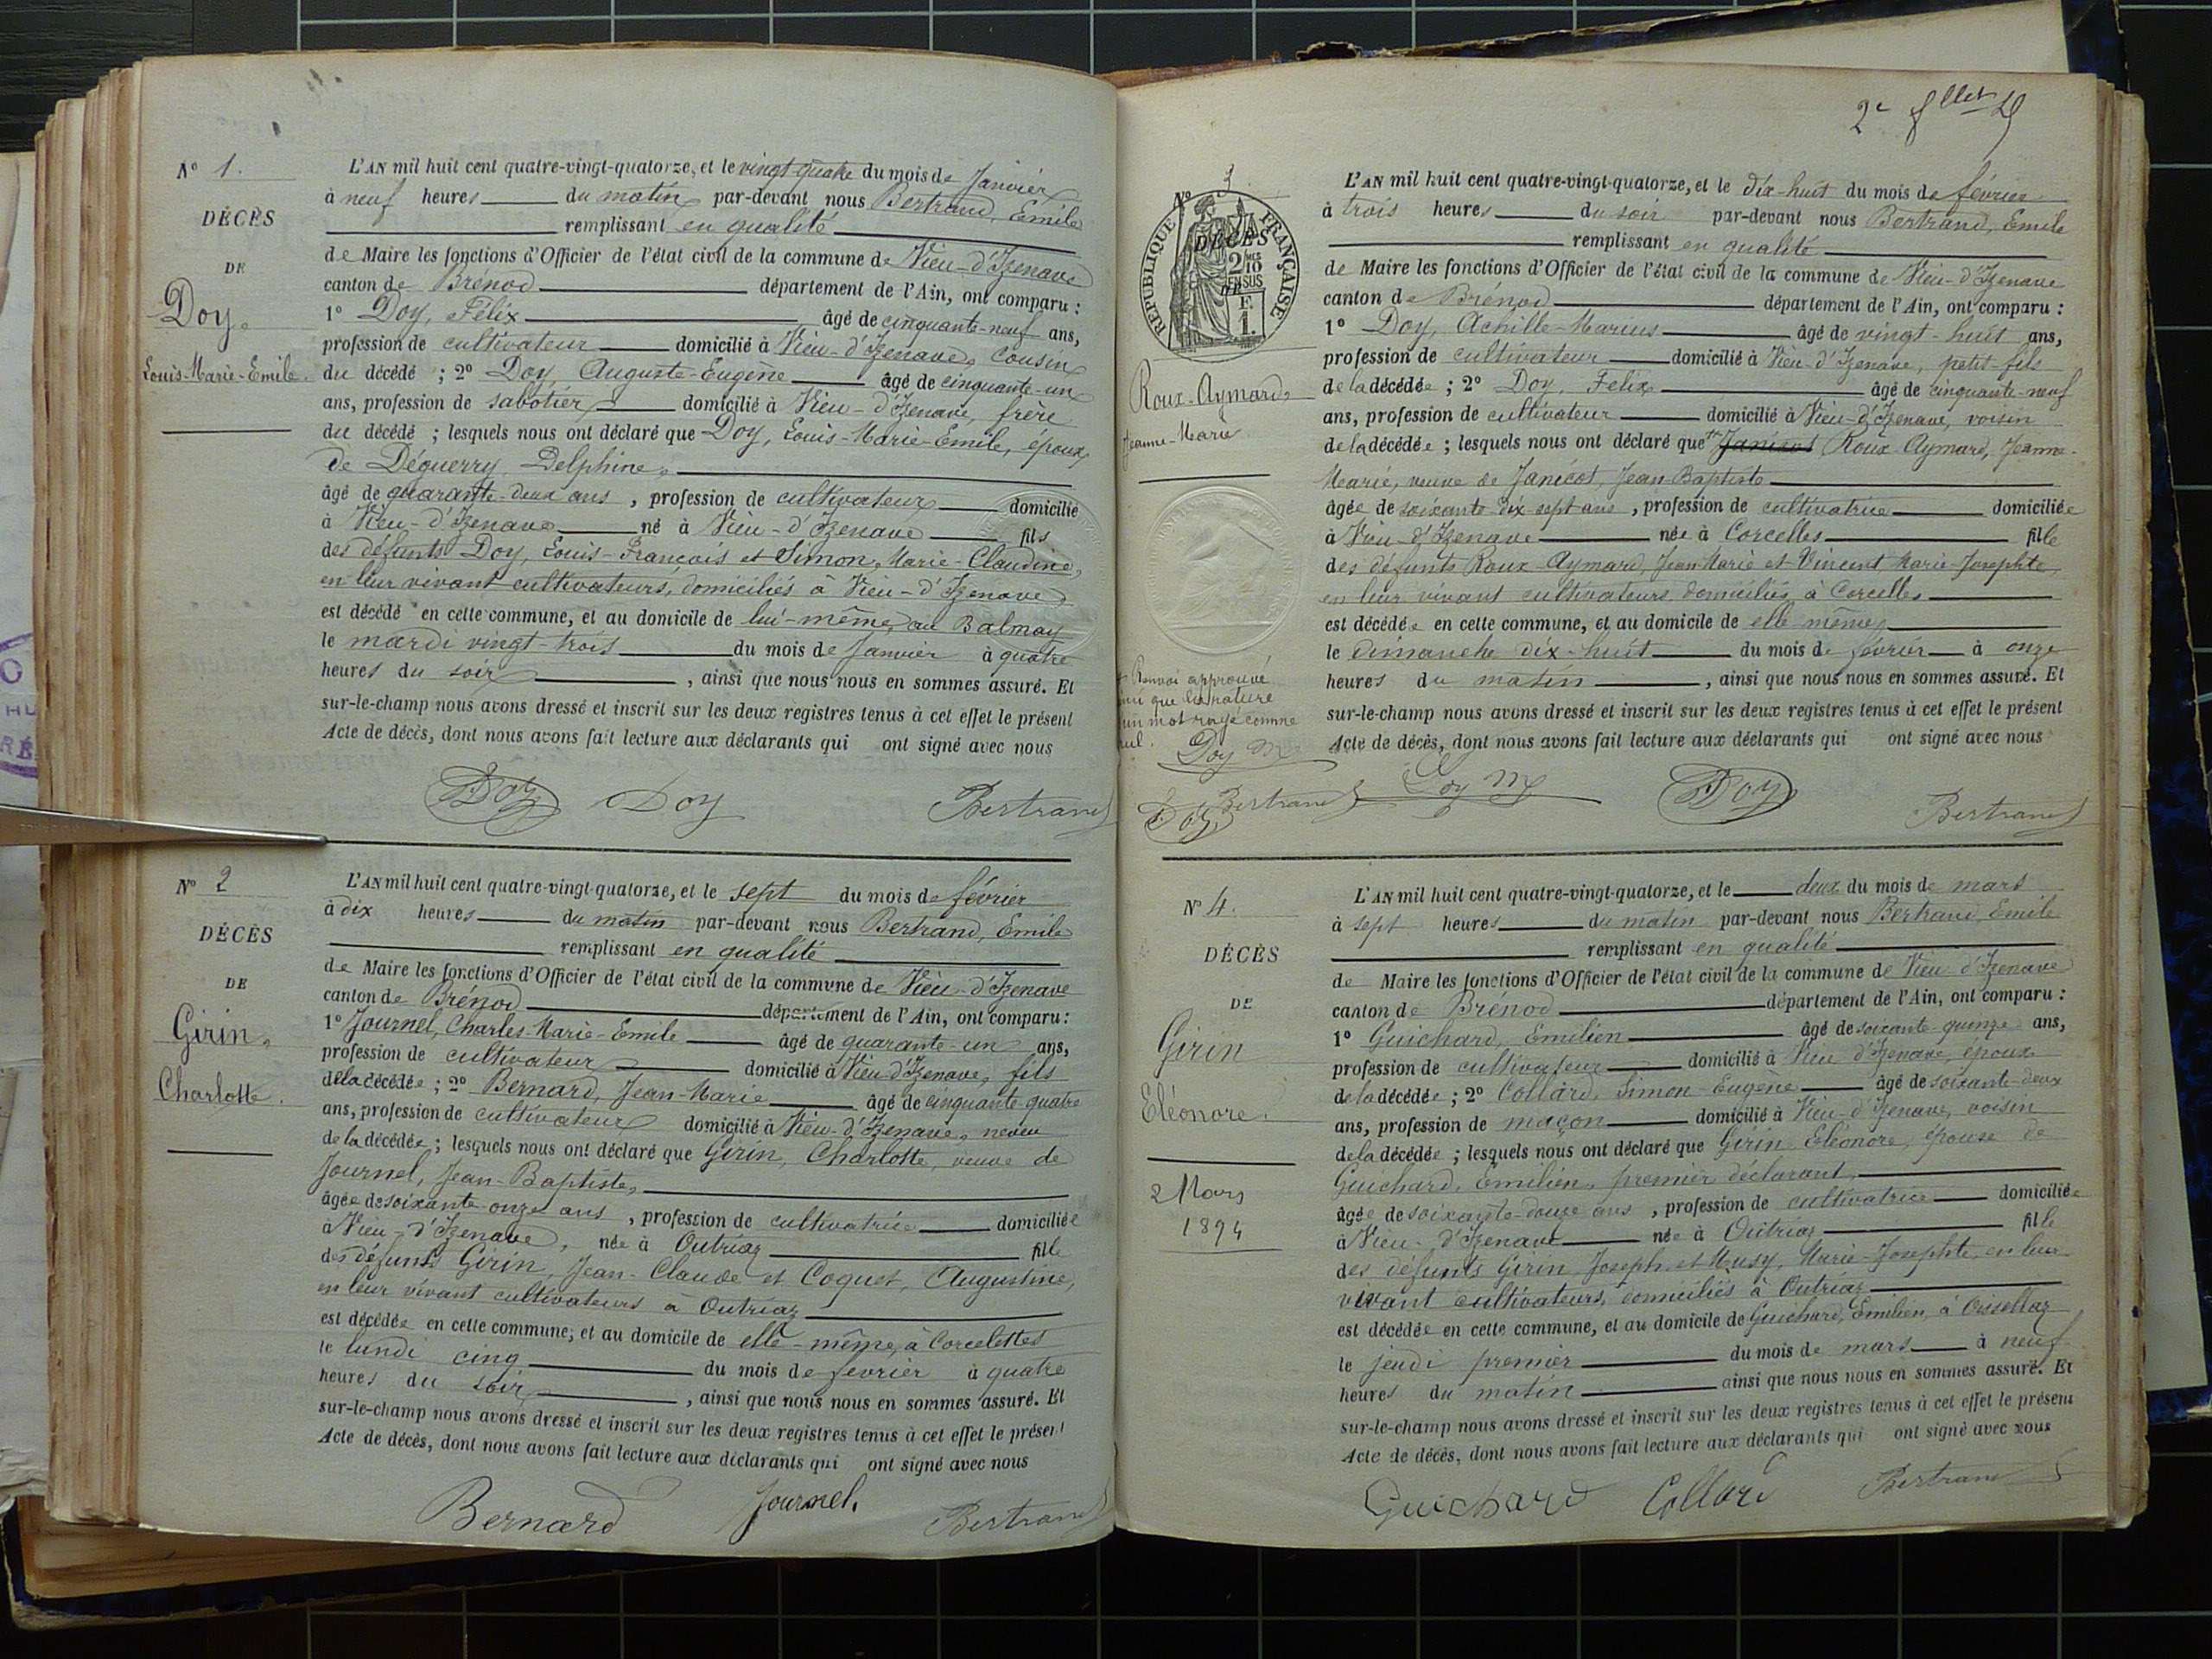 N° 1.
DÉCÈS
DE
Doy
Louis-Marie-Emile
L'AN mil huit cent quatre-vingt-quatorze, et le vingt-quatre du mois de Janvier
à neuf heures du matin par-devant nous Bertrand, Emile
remplissant en qualité
de Maire les fonctions d'Officier de l'état civil de la commune de Vieu-d'Izenave
canton de Brénod département de l'Ain, ont comparu :
1° Doy, Félix âgé de cinquante-neuf ans,
profession de cultivateur domicilié à Vieu-d'Izenave, cousin
du décédé ; 2° Doy Auguste-Eugène âgé de cinquante-un
ans, profession de sabotier domicilié à Vieu-d'Izenave, frère
du décédé ; lesquels nous ont déclaré que Doy, Louis-Marie-Emile, époux
de Déguerry, Delphine,
âgé de quarante-deux ans , profession de cultivateur domicilié
à Vieu-d'Izenave né à Vieu-d'Izenave fils
des défunts Doy, Louis-François et Simon, Marie-Claudine,
en leur vivant cultivateurs, domiciliés à Vieu-d'Izenave
est décédé en cette commune, et au domicile de lui-même, au Balmay
le mardi vingt-trois du mois de Janvier à quatre
heures du soir , ainsi que nous nous en sommes assuré. Et
sur-le-champ nous avons dressé et inscrit sur les deux registres tenus à cet effet le présent
Acte de décès, dont nous avons fait lecture aux déclarants qui ont signé avec nous
Doy Doy Bertrand
N° 2
DÉCÈS
DE
Girin,
Charlotte.
L'AN mil huit cent quatre-vingt-quatorze, et le sept du mois de février
à dix heures du matin par-devant nous Bertrand, Emile
remplissant en qualité
de Maire les fonctions d'Officier de l'état civil de la commune de Vieu-d'Izenave
canton de Brénod département de l'Ain, ont comparu :
1° Journel, Charles-Marie-Emile âgé de quarante-un ans,
profession de cultivateur domicilié à Vieu d'Izenave, fils
de la décédée ; 2° Bernard, Jean-Marie âgé de cinquante-quatre
ans, profession de cultivateur domicilié à Vieu-d'Izenave, neveu
de la décédée ; lesquels nous ont déclaré que Girin, Charlotte, veuve de
Journel, Jean-Baptiste,
âgée de soixante-onze ans , profession de cultivatrice domiciliée
à Vieu-d'Izenave, née à Outriaz fille
des défunts Girin, Jean-Claude et Coquet, Augustine,
en leur vivant cultivateurs à Outriaz
est décédée en cette commune, et au domicile de elle-même, à Corcelettes
le lundi cinq du mois de février à quatre
heures du soir , ainsi que nous nous en sommes assuré. Et
sur-le-champ nous avons dressé et inscrit sur les deux registres tenus à cet effet le présent
Acte de décès, dont nous avons fait lecture aux déclarants qui ont signé avec nous
Bernard Journel, Bertrand
2e
N° 3.
DÉCÈS
DE
RÉPUBLIQUE FRANÇAISE
2/10 EN SUS
F.
1.
Roux-Aymard,
Jeanne-Marie.
L'AN mil huit cent quatre-vingt-quatorze, et le dix-huit du mois de février
à trois heures du soir par-devant nous Bertrand, Emile
remplissant en qualité
de Maire les fonctions d'Officier de l'état civil de la commune de Vieu-d'Izenave
canton de Brénod département de l'Ain, ont comparu :
1° Doy, Achille-Marius âgé de vingt-huit ans,
profession de cultivateur domicilié à Vieu-d'Izenave, petit-fils
de la décédée ; 2° Doy, Félix âgé de cinquante-neuf
ans, profession de cultivateur domicilié à Vieu-d'Izenave, voisin
de la décédée ; lesquels nous ont déclaré que Janicot Roux-Aymard, Jeanne-
Marie, veuve de Janicot, Jean-Baptiste
âgée de soixante-dix-sept ans , profession de cultivatrice domiciliée
à Vieu-d'Izenave née à Corcelles fille
des défunts Roux-Aymard, Jean-Marie et Vincent, Marie-Josephte,
en leur vivant cultivateurs domiciliés à Corcelles
est décédée en cette commune, et au domicile de elle-même,
le dimanche dix-huit du mois de février à onze
heures du matin , ainsi que nous nous en sommes assuré. Et
sur-le-champ nous avons dressé et inscrit sur les deux registres tenus à cet effet le présent
Acte de décès, dont nous avons fait lecture aux déclarants qui ont signé avec nous
Renvoi approuvé
que la rature
un mot rayé comme
nul.
Doy M
Doy Bertrand Doy M Doy Bertrand
N° 4.
DÉCÈS
DE
Girin
Eléonore.
2 Mars
1894
L'AN mil huit cent quatre-vingt-quatorze, et le deux du mois de mars
à sept heures du matin par-devant nous Bertrand, Emile
remplissant en qualité
de Maire les fonctions d'Officier de l'état civil de la commune de Vieu-d'Izenave
canton de Brénod département de l'Ain, ont comparu :
1° Guichard, Emilien âgé de soixante-quinze ans,
profession de cultivateur domicilié à Vieu d'Izenave, époux
de la décédée ; 2° Collard, Simon-Eugène âgé de soixante-deux
ans, profession de maçon domicilié à Vieu-d'Izenave, voisin
de la décédée ; lesquels nous ont déclaré que Girin, Eléonore, épouse de
Guichard, Emilien, premier déclarant,
âgée de soixante-douze ans , profession de cultivatrice domiciliée
à Vieu-d'Izenave née à Outriaz fille
des défunts Girin Joseph et Muzy, Marie-Josephte, en leur
vivant cultivateurs, domiciliés à Outriaz
est décédée en cette commune, et au domicile de Guichard, Emilien, à Oisellaz
le jeudi premier du mois de mars à neuf
heures du matin ainsi que nous nous en sommes assuré. Et
sur-le-champ nous avons dressé et inscrit sur les deux registres tenus à cet effet le présent
Acte de décès, dont nous avons fait lecture aux déclarants qui ont signé avec nous
Guichard Collard Bertrand